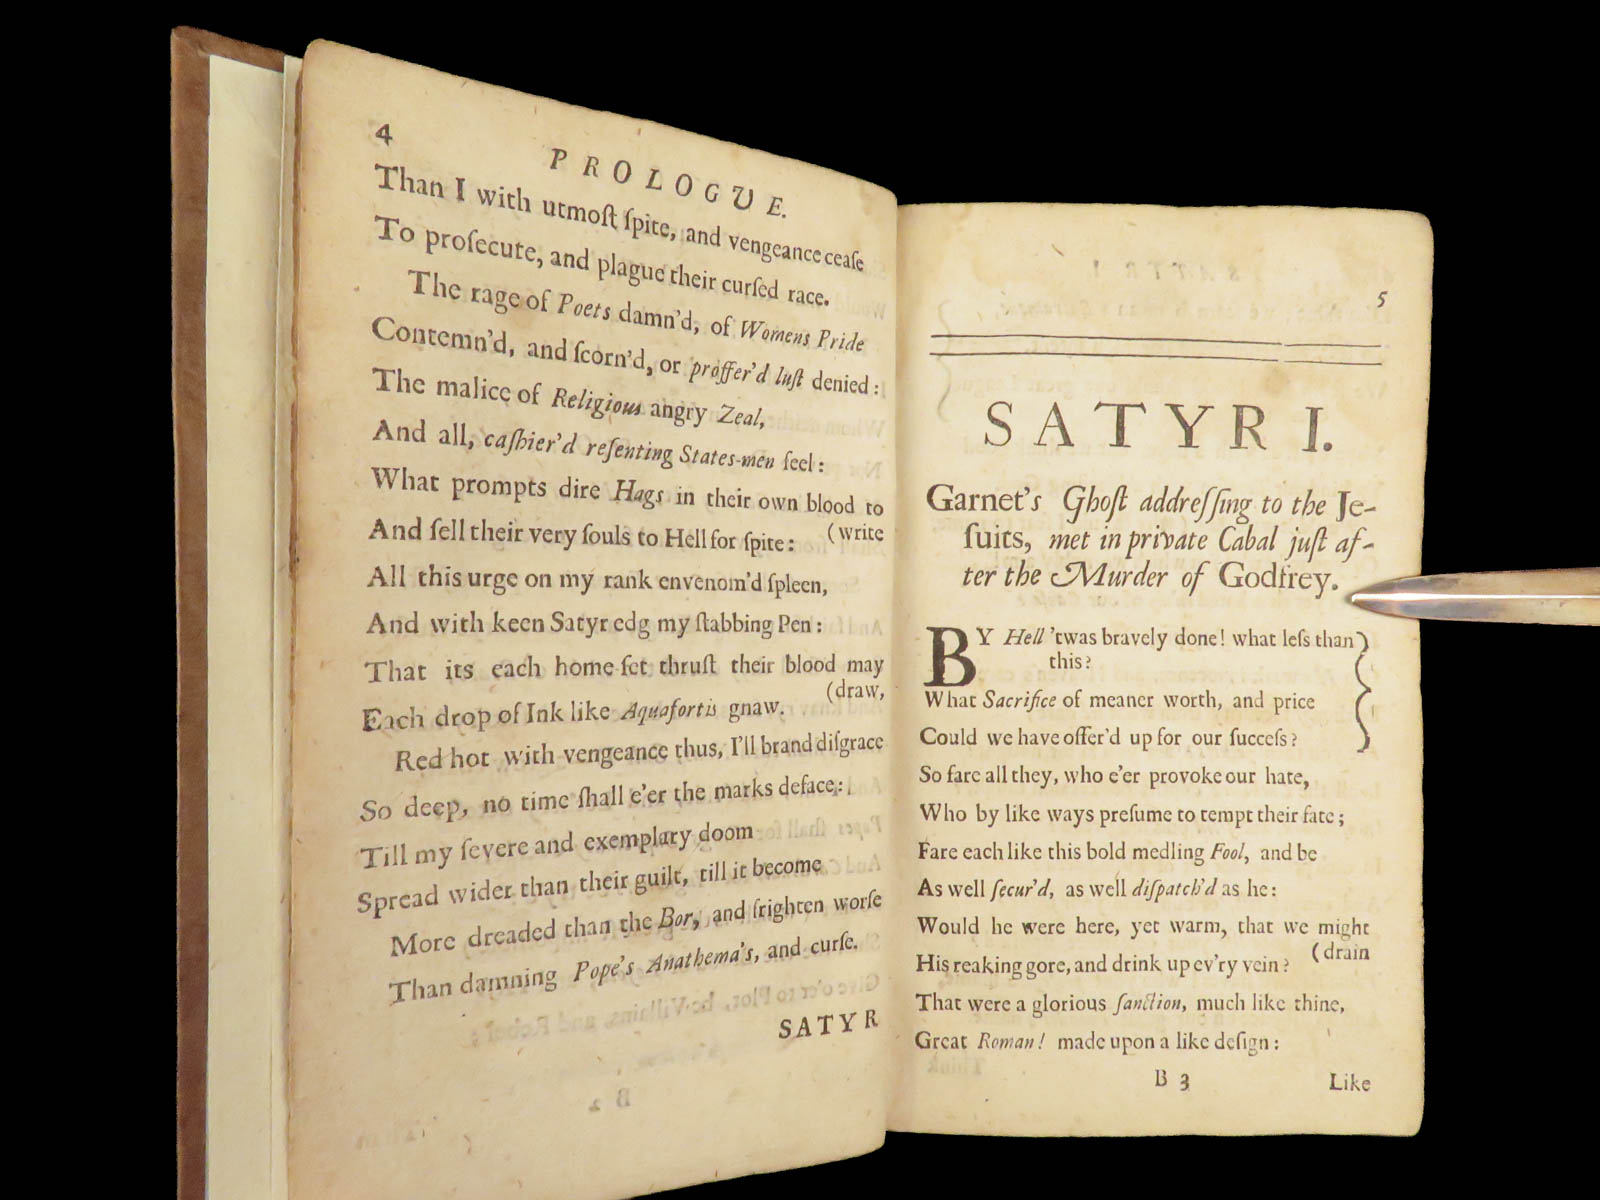 4
PROLOGUE.
Than I with utmoſt ſpite, and vengeance ceaſe
To proſecute, and plague their curſed race.
The rage of Poets damn'd, of Womens Pride
Contemn'd, and ſcorn'd, or proffer'd luſt denied:
The malice of Religious angry Zeal,
And all, caſhier'd reſenting States-men feel:
What prompts dire Hags in their own blood to
(write
And ſell their very ſouls to Hell for ſpite:
All this urge on my rank envenom'd ſpleen,
And with keen Satyr edg my ſtabbing Pen:
That its each home-ſet thruſt their blood may
(draw,
Each drop of Ink like Aquafortis gnaw.
Red hot with vengeance thus, I'll brand diſgrace
So deep, no time ſhall e'er the marks deface:
Till my ſevere and exemplary doom
Spread wider than their guilt, till it become
More dreaded than the Bor, and frighten worſe
Than damning Pope's Anathema's, and curſe.
SATYR
5
SATYR I.
Garnet's Ghoſt addreſſing to the Je-
ſuits, met in private Cabal juſt af-
ter the Murder of Godfrey.
BY Hell 'twas bravely done! what leſs than
this?
What Sacrifice of meaner worth, and price
Could we have offer'd up for our ſucceſs?
So fare all they, who e'er provoke our hate,
Who by like ways preſume to tempt their fate;
Fare each like this bold medling Fool, and be
As well ſecur'd, as well diſpatch'd as he:
Would he were here, yet warm, that we might
(drain
His reaking gore, and drink up ev'ry vein?
That were a glorious ſanction, much like thine,
Great Roman! made upon a like deſign:
B 3
Like